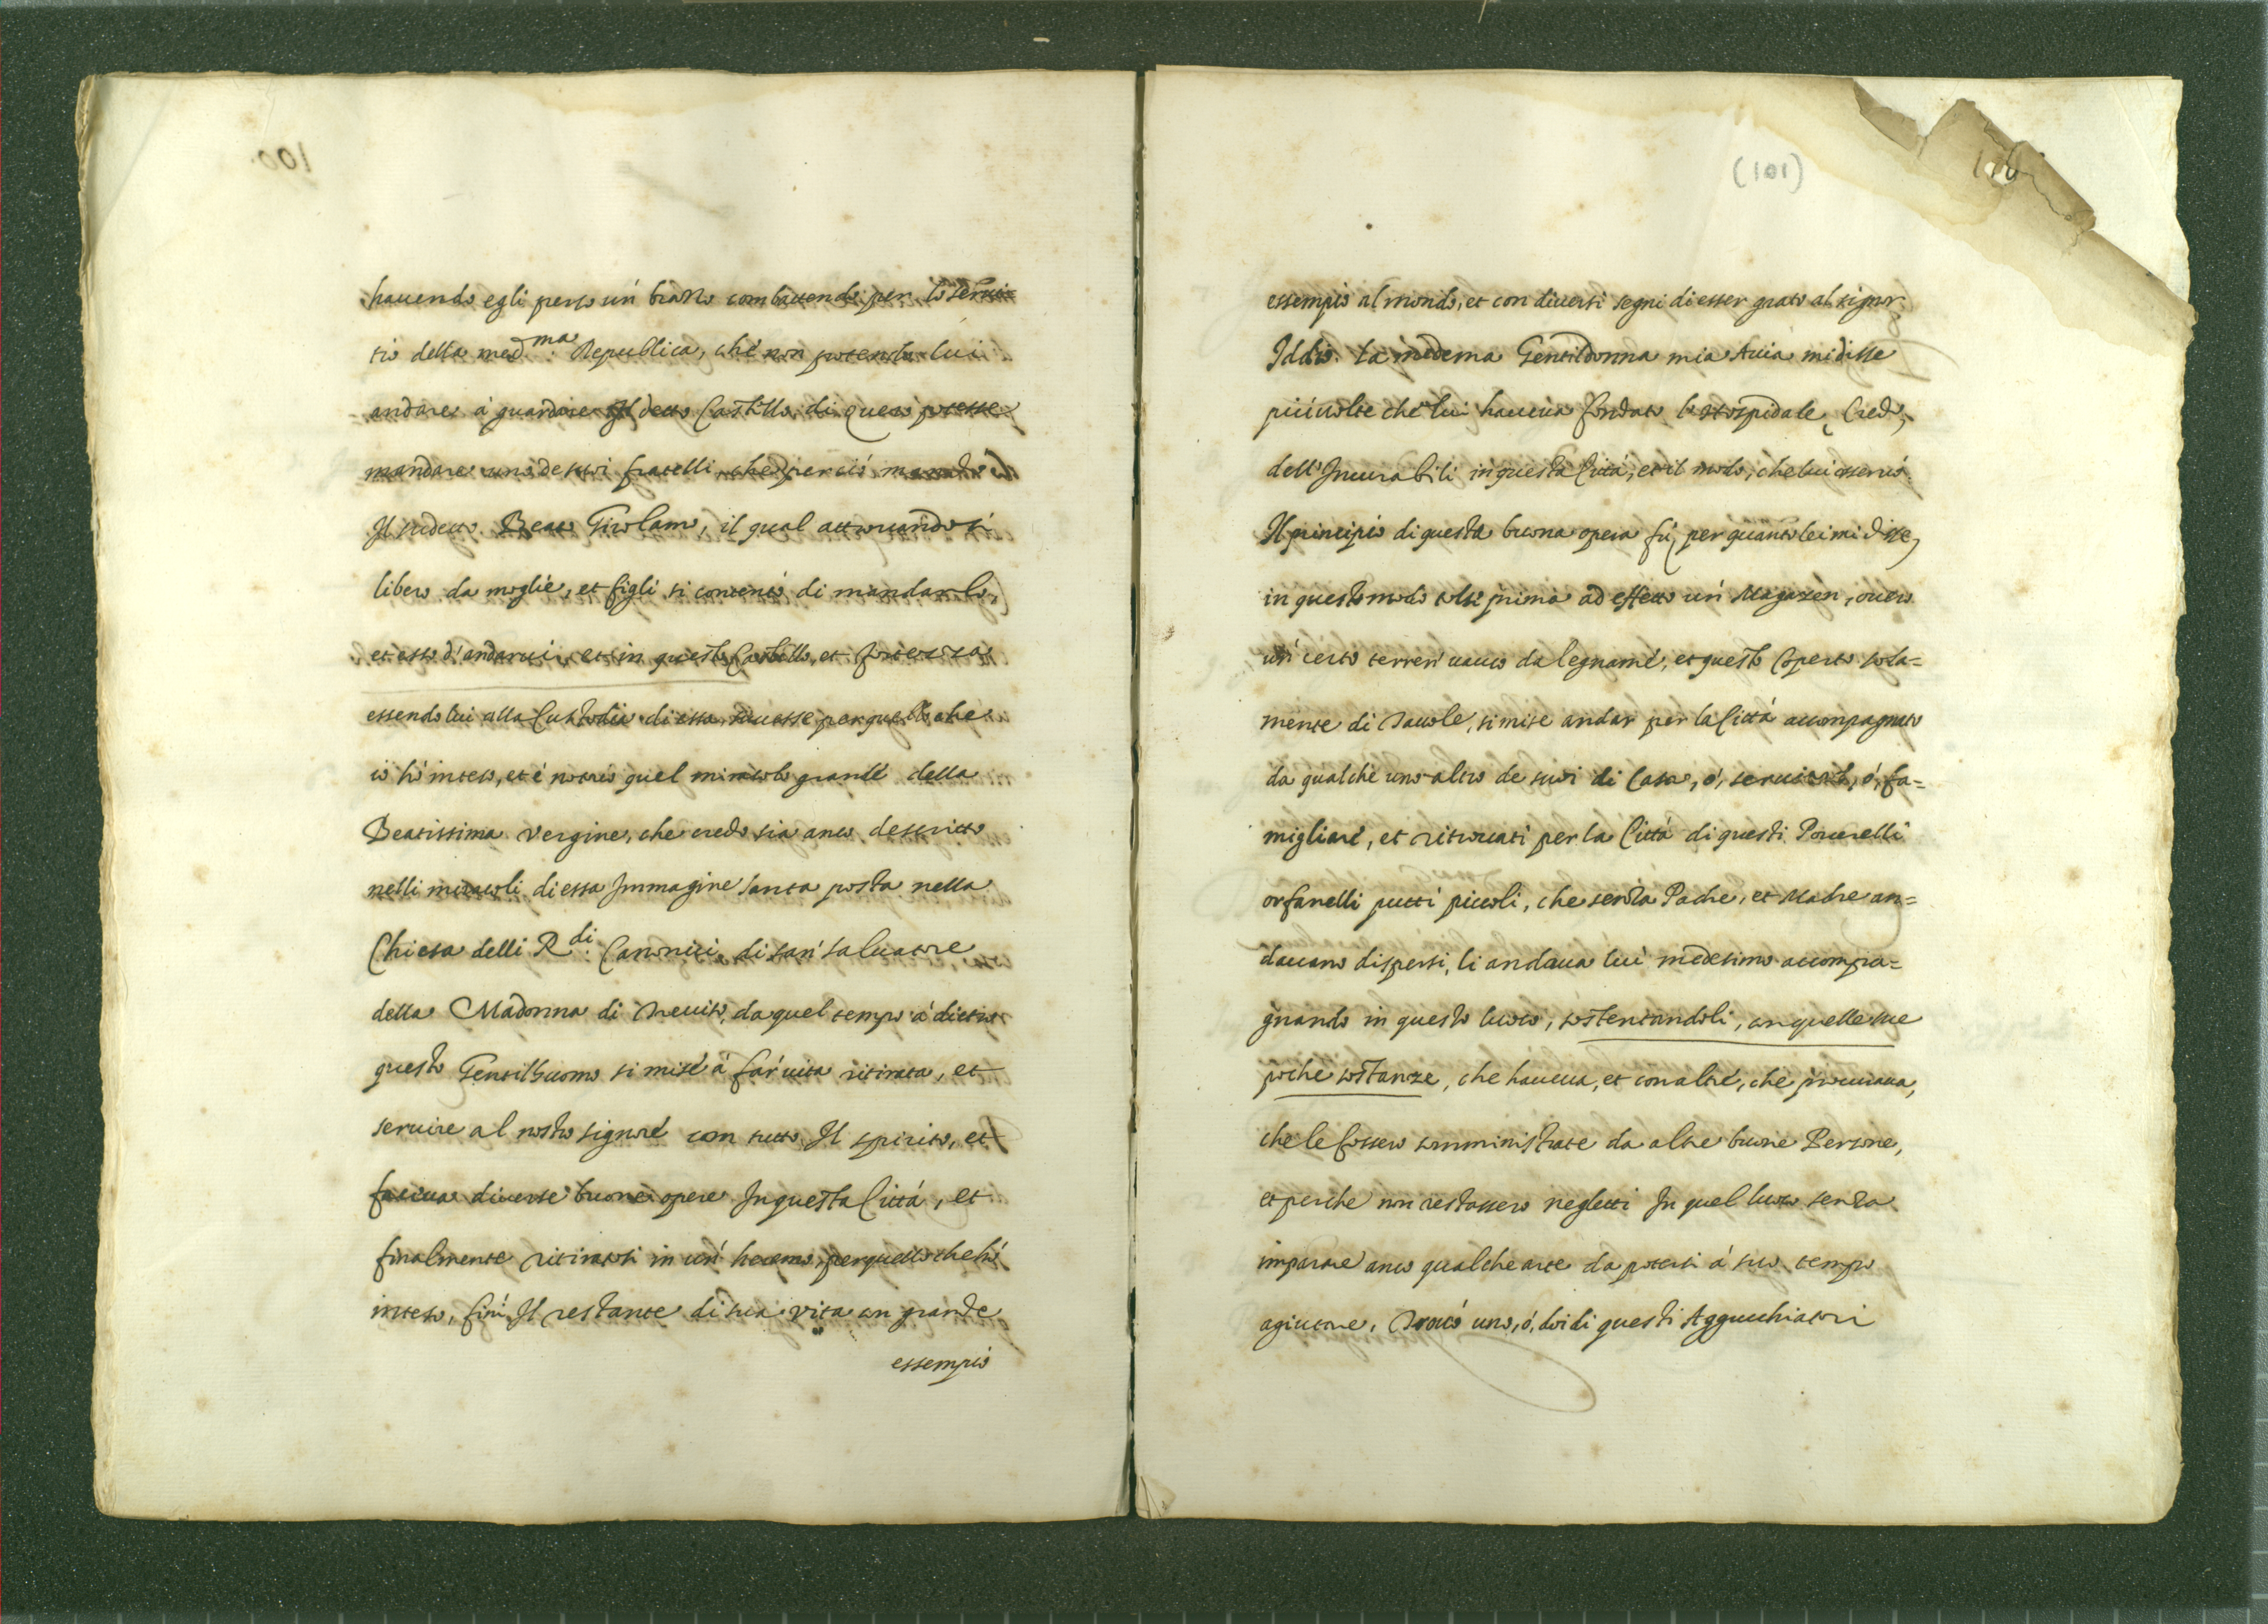 hauendo egli perso un' brazzo combattendo per lo serui=
tio della med.ma Republica, che non potendo lui
andare à guardare Il detto Castello di Quero potesse
mandare uno de suoi fratelli che perciò mandò
Il sudetto Beato Girolamo, il qual attrouandosi
libero da moglie, et figli si contentò di mandarlo,
et esso d'andarui, et in questo Castello, et fortezza
essendo lui alla Custodia di essa, hauesse per quello che
io hò inteso, et è notorio quel miracolo grande della
Beatissima Vergine, che credo sia anco descritto
nelli miracoli di essa Immagine santa posta nella
Chiesa delli R.di Canonici di san' Saluatore
della Madonna di Treuiso, da quel tempo à dietro
questo Gentilhuomo si mise à far' uita ritirata, et
seruire al nostro signore con tutto Il spirito, et
faceua diuerse buone opere In questa Città, et
finalmente ritiratosi in un' heremo, per quello che hò
inteso, finì Il restante di sua vita con grande
essempio
100.
(101)
essempio al mondo, et con diuersi segni di esser grato al signor
Iddio. La medema Gentildonna mia Auia mi disse
più uolte che lui haueua fondato l'Hospidale, Credo,
dell'Incurabili in questa Città, et il modo, che lui osseruò.
Il principio di questa buona opera fù, per quanto lei mi disse,
in questo modo tolse prima ad effetto un' Magazen, ouero
un' certo terren' uacuo da legname, et questo Coperto sola=
mente di Tauole, si mise andar per la Città accompagnato
da qualche uno altro de suoi di Casa, ò, seruitori, ò, fa=
migliare, et ritrouati per la Città di questi Pouerelli
orfanelli putti piccoli, che senza Padre, et Madre an=
dauano dispersi, li andaua lui medesimo accompa=
gnando in questo luoco, sostentandoli, con quelle sue
poche sostanze, che haueua, et con altre, che procuraua,
che le fossero somministrate da altre buone Persone,
et perche non restassero negletti In quel luoco senza
imparare anco qualche arte da potersi à suo tempo
agiutare, Trouò uno, ò, doi di questi Aggucchiatori